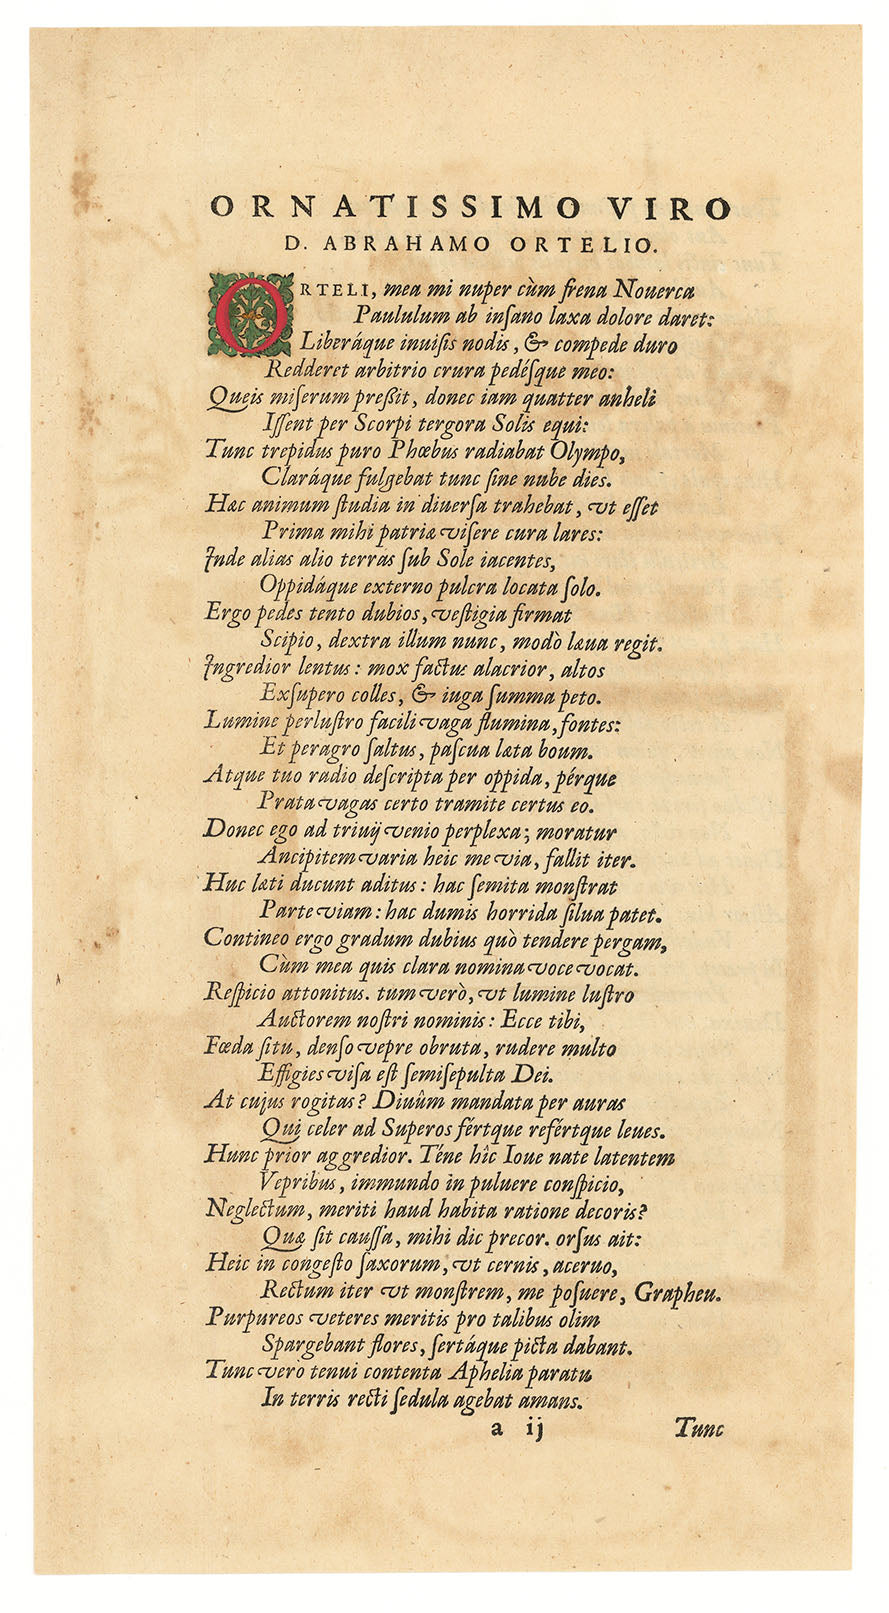 ORNATISSIMO VIRO
D. ABRAHAMO ORTELIO.
ORTELI, mea mi nuper cùm frena Nouerca
Paululum ab inſano laxa dolore daret:
Liberáque inuiſis nodis, & compede duro
Redderet arbitrio crura pedéſque meo:
Queis miſerum preßit, donec iam quatter anheli
Iſſent per Scorpi tergora Solis equi:
Tunc trepidus puro Phœbus radiabat Olympo,
Claráque fulgebat tunc ſine nube dies.
Hæc animum ſtudia in diuerſa trahebat, vt eſſet
Prima mihi patriæ viſere cura lares:
Inde alias alio terras ſub Sole iacentes,
Oppidáque externo pulcra locata ſolo.
Ergo pedes tento dubios, veſtigia firmat
Scipio, dextra illum nunc, modò læua regit.
Ingredior lentus: mox factus alacrior, altos
Exſupero colles, & iuga ſumma peto.
Lumine perluſtro facili vaga flumina, fontes:
Et peragro ſaltus, paſcua læta boum.
Atque tuo radio deſcripta per oppida, pérque
Prata vagas certo tramite certus eo.
Donec ego ad triuij venio perplexa; moratur
Ancipitem varia heic me via, fallit iter.
Huc læti ducunt aditus: hac ſemita monſtrat
Parte viam: hac dumis horrida ſilua patet.
Contineo ergo gradum dubius quò tendere pergam,
Cùm mea quis clara nomina voce vocat.
Reſpicio attonitus. tum verò, vt lumine luſtro
Auctorem noſtri nominis: Ecce tibi,
Fœda ſitu, denſo vepre obruta, rudere multo
Effigies viſa eſt ſemiſepulta Dei.
At cujus rogitas? Diuûm mandata per auras
Qui celer ad Superos fértque refértque leues.
Hunc prior aggredior. Téne hîc Ioue nate latentem
Vepribus, immundo in puluere conſpicio,
Neglectum, meriti haud habita ratione decoris?
Quæ ſit cauſſa, mihi dic precor. orſus ait:
Heic in congeſto ſaxorum, vt cernis, aceruo,
Rectum iter vt monſtrem, me poſuere, Grapheu.
Purpureos veteres meritis pro talibus olim
Spargebant flores, ſertáque picta dabant.
Tunc verò tenui contenta Aphelia paratu
In terris recti ſedula agebat amans.
a ij Tunc